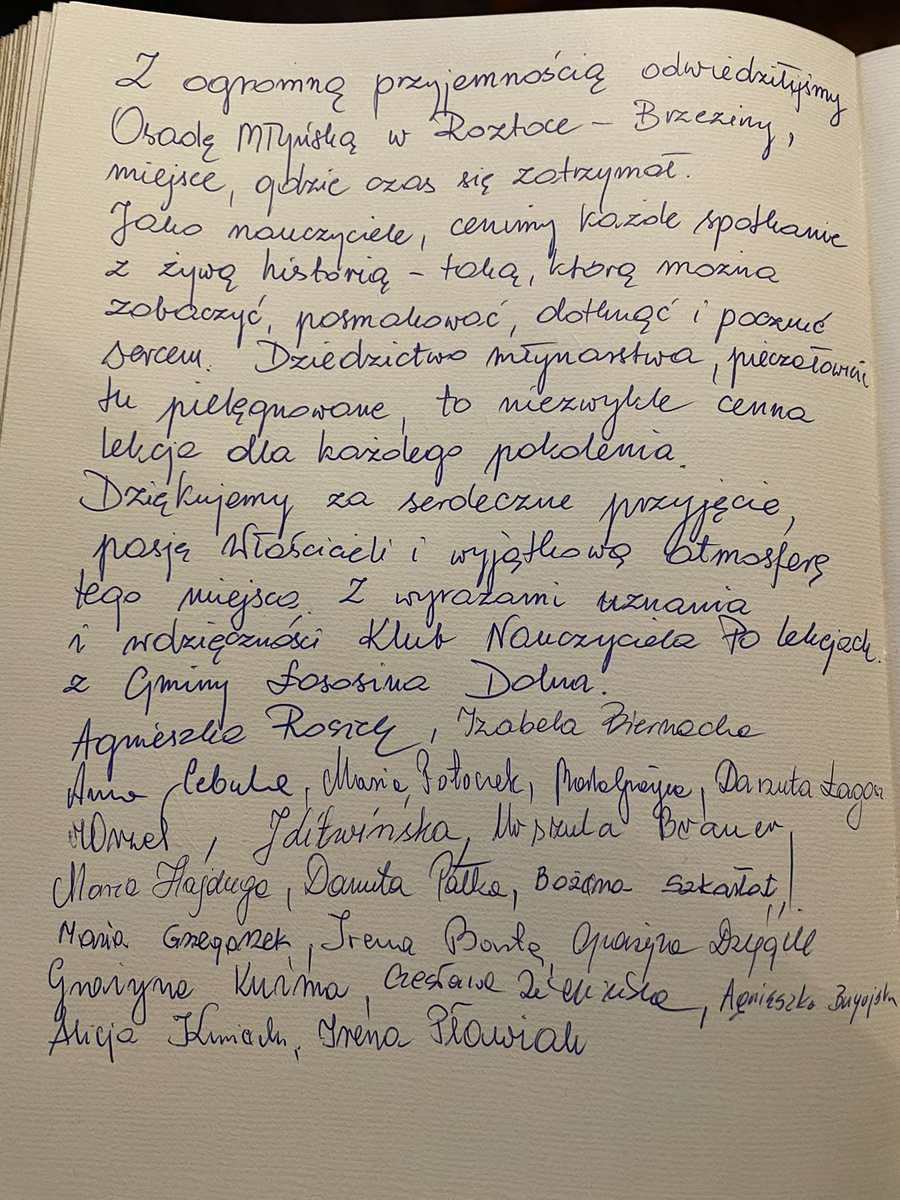 Z ogromną przyjemnością odwiedziłyśmy
Osadę Młyńską w Roztoce - Brzeziny,
miejsce, gdzie czas się zatrzymał.
Jako nauczyciele, cenimy każde spotkanie
z żywą historią - taką, którą można
zobaczyć, posmakować, dotknąć i poczuć
sercem. Dziedzictwo młynarstwa, pieczołowicie
tu pielęgnowane, to niezwykle cenna
lekcja dla każdego pokolenia.
Dziękujemy za serdeczne przyjęcie,
pasję Właścicieli i wyjątkową atmosferę
tego miejsca. Z wyrazami uznania
i wdzięczności Klub Nauczyciela Po lekcjach
z Gminy Łososina Dolna.
Agnieszka Rosiek, Izabela Biernacka
Anna Cebula, Maria Potoczek, Danuta Łagosz
Urszula Brauer,
Maria Hajduga, Danuta Pałka, Bożena Szkarłat,
Maria Grzegorzek, Irena
Grażyna Kuźma, Czesława, Agnieszka
Alicja, Irena Pławiak